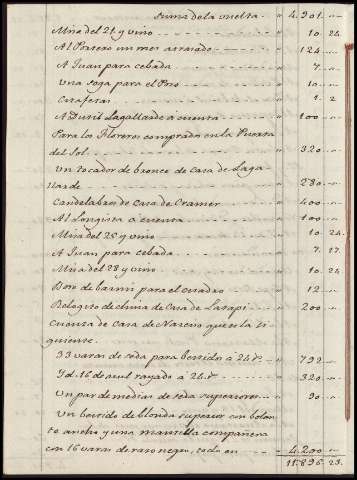 Suma de la vuelta - - - " 4.901. "
Misa del 21 y vino - - - " 10. 24.
Al Potrero un mes atrasado - - - " 124. "
A Juan para cebada - - - " 7. "
Una soga para el Pozo - - - " 10. "
- - - " 1. 2
A Dutil Lagallarde a cuenta - - - " 100. "
Para los Floreros comprados en la Puerta
del Sol - - - " 320. "
Un tocador de bronce de Casa de Laga
llarde - - - " 280. "
Candelabros de Casa de Cramer - - - " 400. "
Al Longista a cuenta - - - " 100. "
Misa del 25 y vino - - - " 10. 24.
A Juan para cebada - - - " 7. 17.
Misa del 28 y vino - - - " 10. 24
Bote de barniz para el cuadro - - - " 12. "
Relogito de china de Casa de Larapi - - - " 200. "
Cuenta de Casa de Narciso que es la si
guiente.
33 varas de seda para bestido á 24 rs - - - " 792. "
Yd. 16 de azul rayado á 24 rs - - - " 320. "
Un par de medias de seda superiores - - - " 90. "
Un bestido de blonda superior con bolan
te ancho y una mantilla compañera
con 16 varas de raso negro, todo en - - - " 4.200. "
11.896. 23.